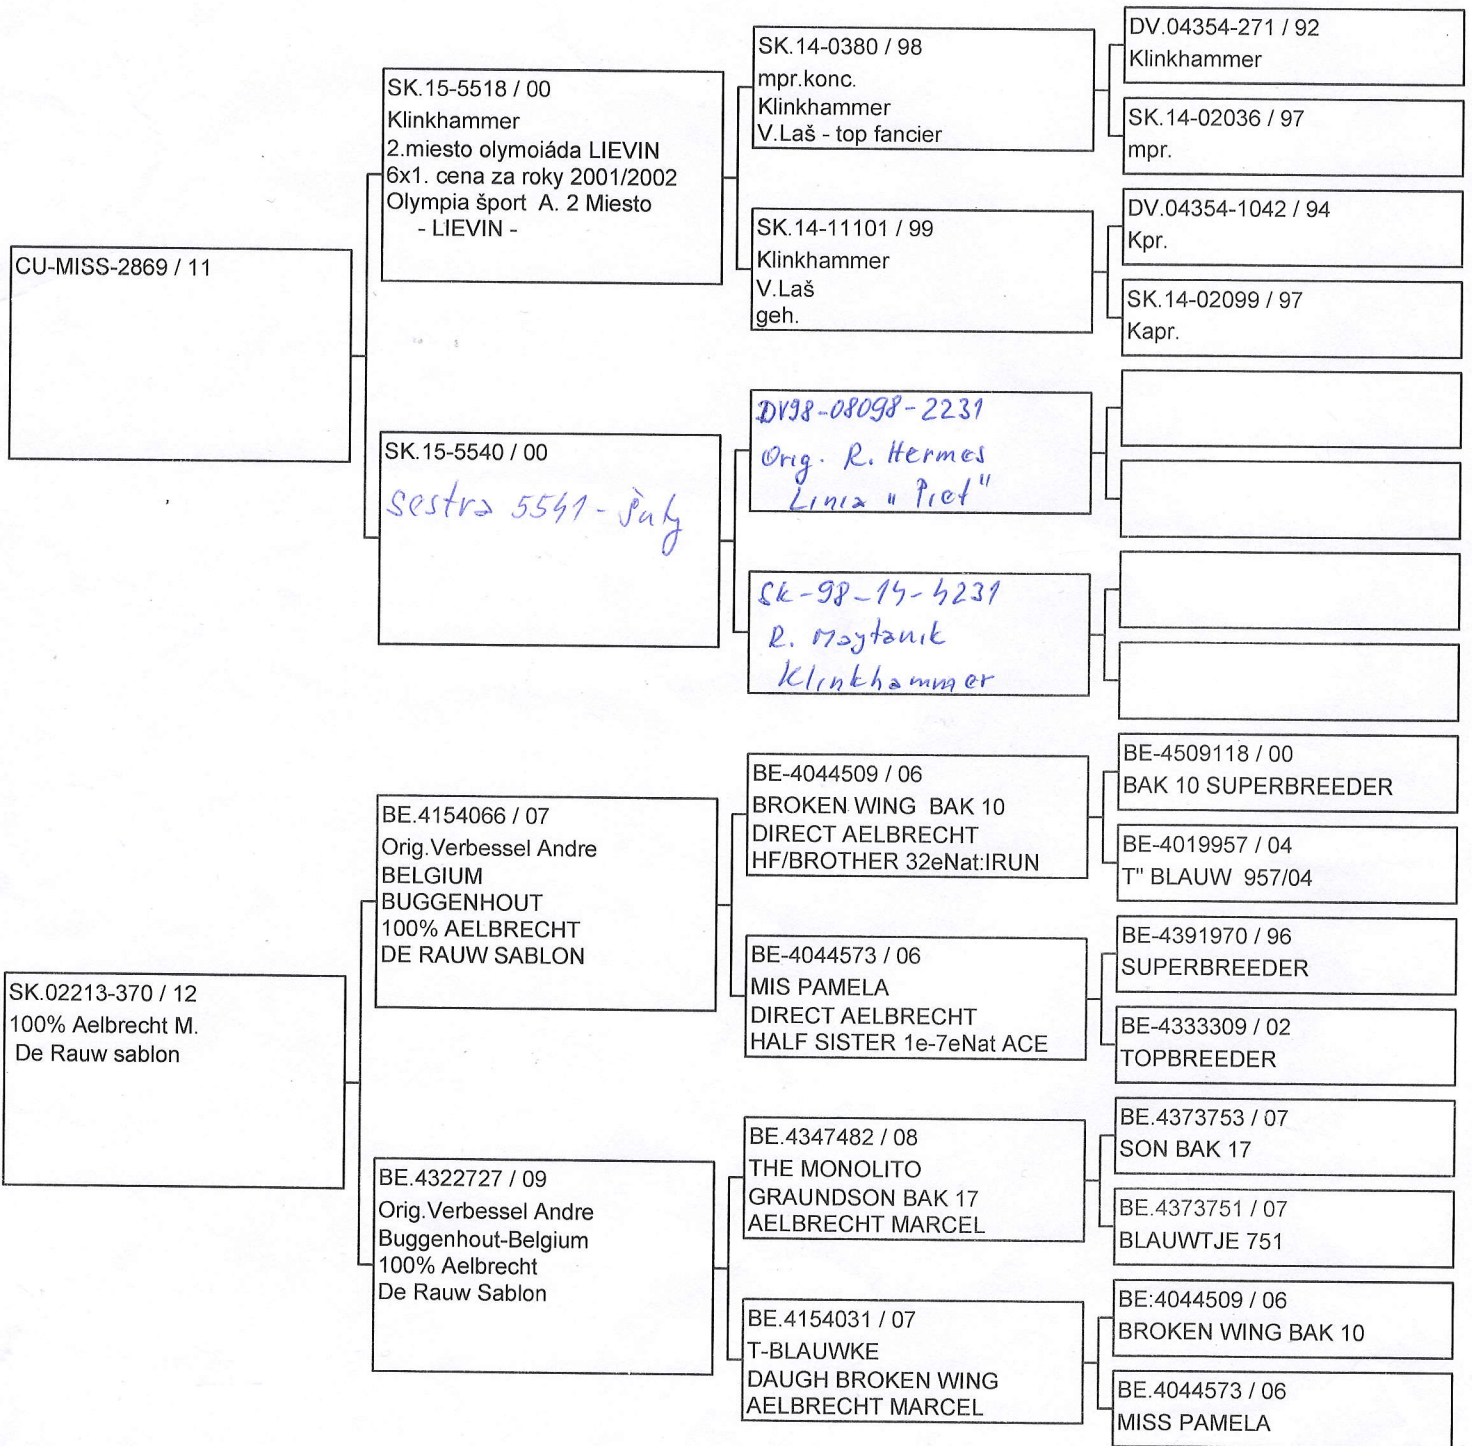 CU-MISS-2869 / 11
SK.15-5518 / 00
Klinkhammer
2.miesto olymoiáda LIEVIN
6x1. cena za roky 2001/2002
Olympia šport A. 2 Miesto
- LIEVIN -
SK.15-5540 / 00
sestra 5541 -
SK.14-0380 / 98
mpr.konc.
Klinkhammer
V.Laš - top fancier
SK.14-11101 / 99
Klinkhammer
V.Laš
geh.
DV98-08098-2231
Orig. R. Hermes
Linia "Piet"
SK-98-14-4231
R. Maytanik
Klinkhammer
DV.04354-271 / 92
Klinkhammer
SK.14-02036 / 97
mpr.
DV.04354-1042 / 94
Kpr.
SK.14-02099 / 97
Kapr.
SK.02213-370 / 12
100% Aelbrecht M.
De Rauw sablon
BE.4154066 / 07
Orig.Verbessel Andre
BELGIUM
BUGGENHOUT
100% AELBRECHT
DE RAUW SABLON
BE.4322727 / 09
Orig.Verbessel Andre
Buggenhout-Belgium
100% Aelbrecht
De Rauw Sablon
BE-4044509 / 06
BROKEN WING BAK 10
DIRECT AELBRECHT
HF/BROTHER 32eNat:IRUN
BE-4044573 / 06
MIS PAMELA
DIRECT AELBRECHT
HALF SISTER 1e-7eNat ACE
BE.4347482 / 08
THE MONOLITO
GRAUNDSON BAK 17
AELBRECHT MARCEL
BE.4154031 / 07
T-BLAUWKE
DAUGH BROKEN WING
AELBRECHT MARCEL
BE-4509118 / 00
BAK 10 SUPERBREEDER
BE-4019957 / 04
T" BLAUW 957/04
BE-4391970 / 96
SUPERBREEDER
BE-4333309 / 02
TOPBREEDER
BE.4373753 / 07
SON BAK 17
BE.4373751 / 07
BLAUWTJE 751
BE:4044509 / 06
BROKEN WING BAK 10
BE.4044573 / 06
MISS PAMELA